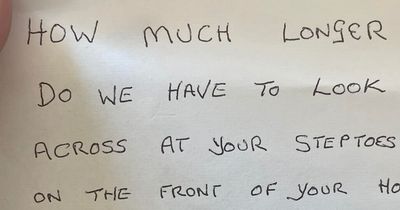 HOW MUCH LONGER
DO WE HAVE TO LOOK
ACROSS AT YOUR STEPTOES
ON THE FRONT OF YOUR HO